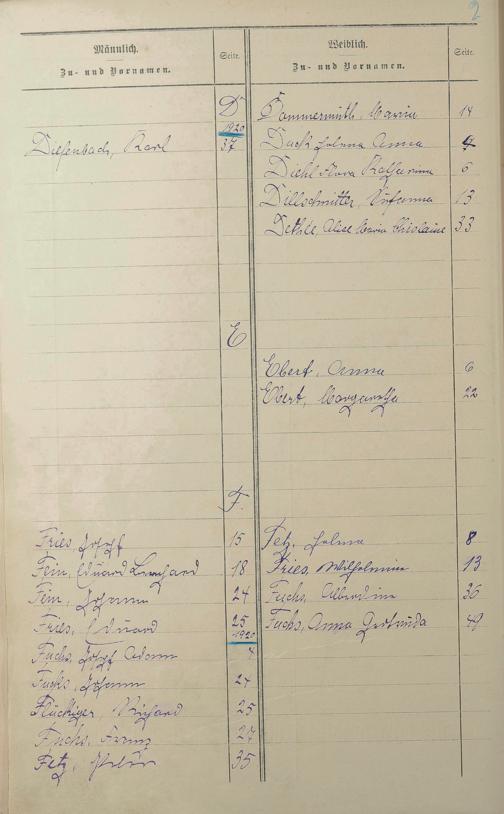 2
Männlich. Seite. Weiblich. Seite.
Zu- und Vornamen. Zu- und Vornamen.
D Dammermuth, Maria 14
1920
Diefenbach, Karl 37 Anna 9
Diehl Katharina 6
Dillschnitter, Susanna 13
Dethié, Alice Maria Ghislaine 33
E
Ebert, Anna 6
Ebert, Margaretha 22
F.
Fries, Josef 15 Fetz, Helma 8
Fein, Eduard Bernhard 18 Fries, Wilhelmine 13
Fein, Johann 24 Fuchs, Albertine 36
Fries, Eduard 25 Fuchs, Anna Gertruda 49
1920
Fuchs, Josef Adam 4
Fuchs, Johann 24
Flückiger, Richard 25
Fuchs, Franz 27
Fetz, Peter 35